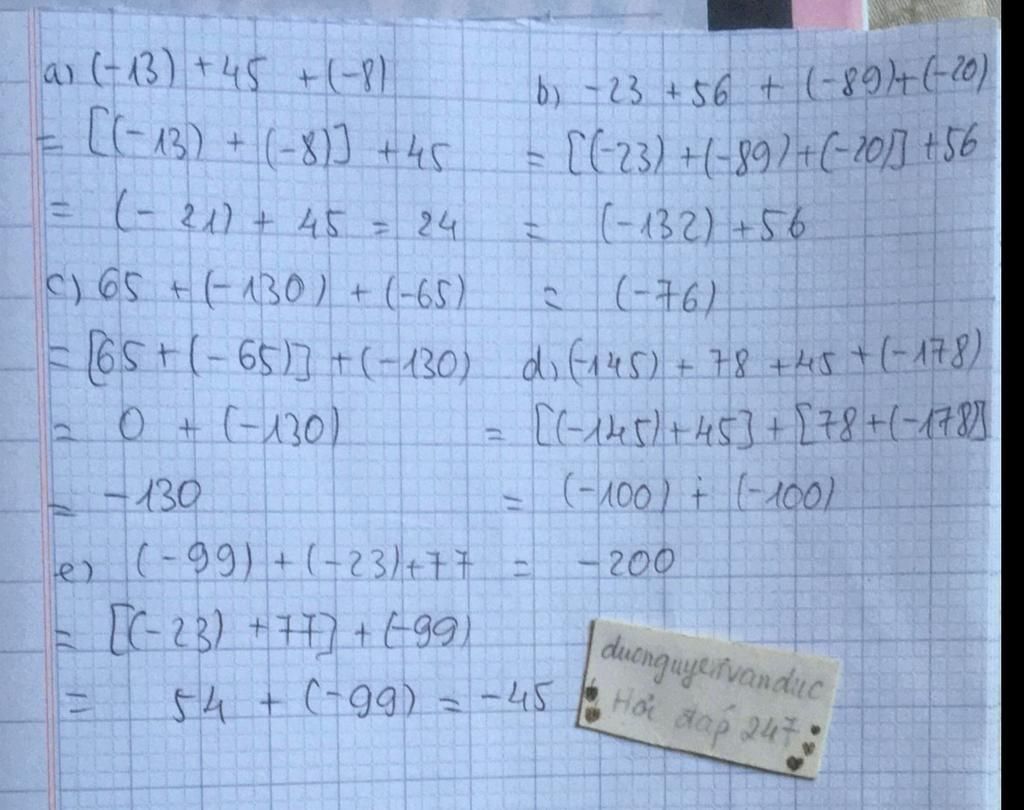 a) (-13) + 45 + (-8)
= [(-13) + (-8)] + 45
= (-21) + 45 = 24
b) -23 + 56 + (-89)+(-20)
= [(-23) + (-89) + (-20)] + 56
= (-132) + 56
= (-76)
c) 65 + (-130) + (-65)
= [65 + (-65)] + (-130)
= 0 + (-130)
= -130
d) (-145) + 78 + 45 + (-178)
= [(-145) + 45] + [78 + (-178)]
= (-100) + (-100)
= -200
e) (-99) + (-23) + 77
= [(-23) + 77] + (-99)
= 54 + (-99) = -45
Hỏi đáp 247